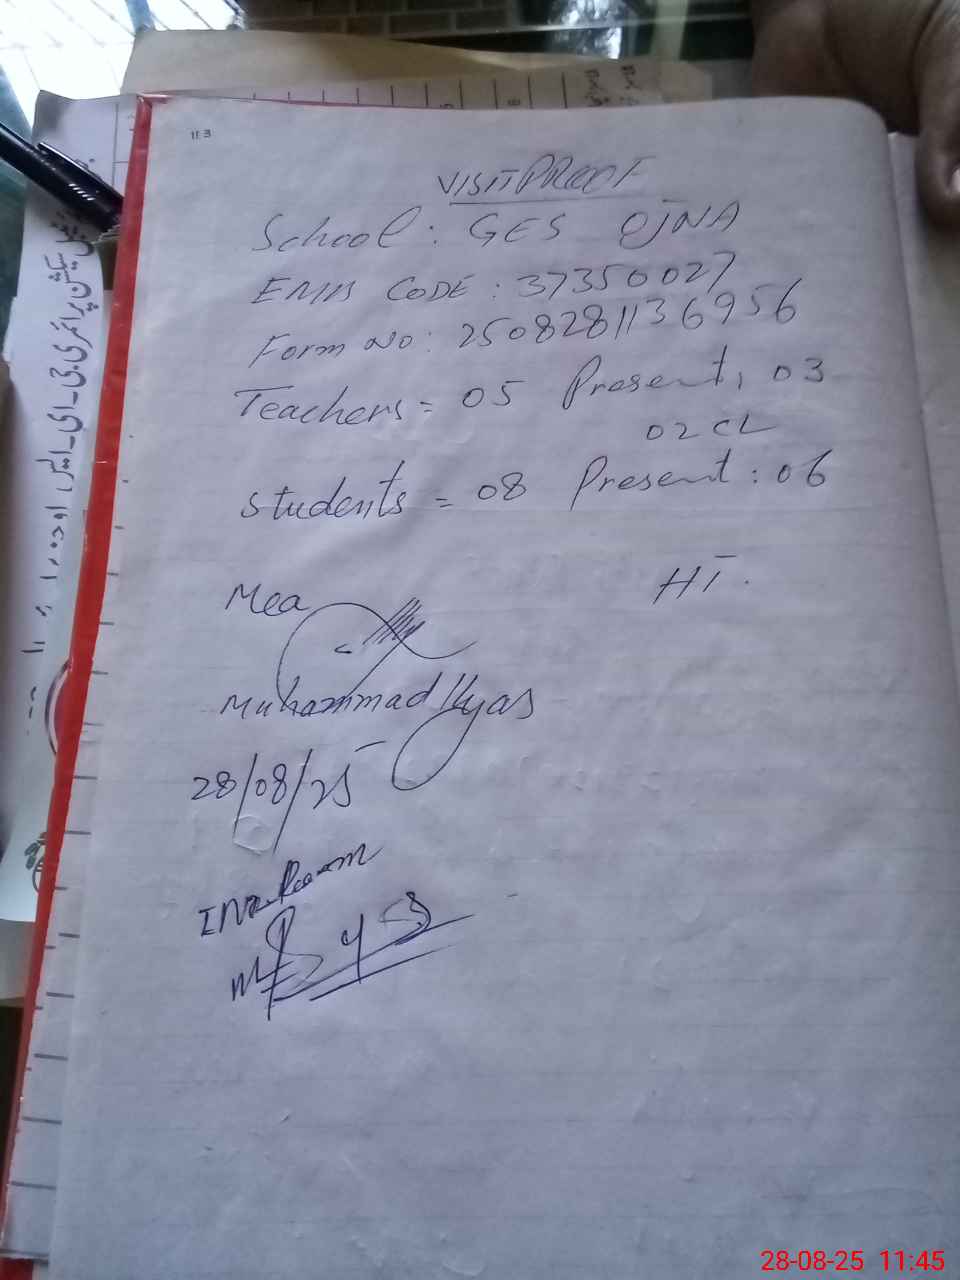 113
VISIT PROOF
School: GES OJNA
EMIS CODE: 37350027
Form No: 2508281136956
Teachers = 05 Present, 03
02 CL
Students = 08 Present: 06
Mea
HT.
Muhammad Ilyas
28/08/25
28-08-25 11:45